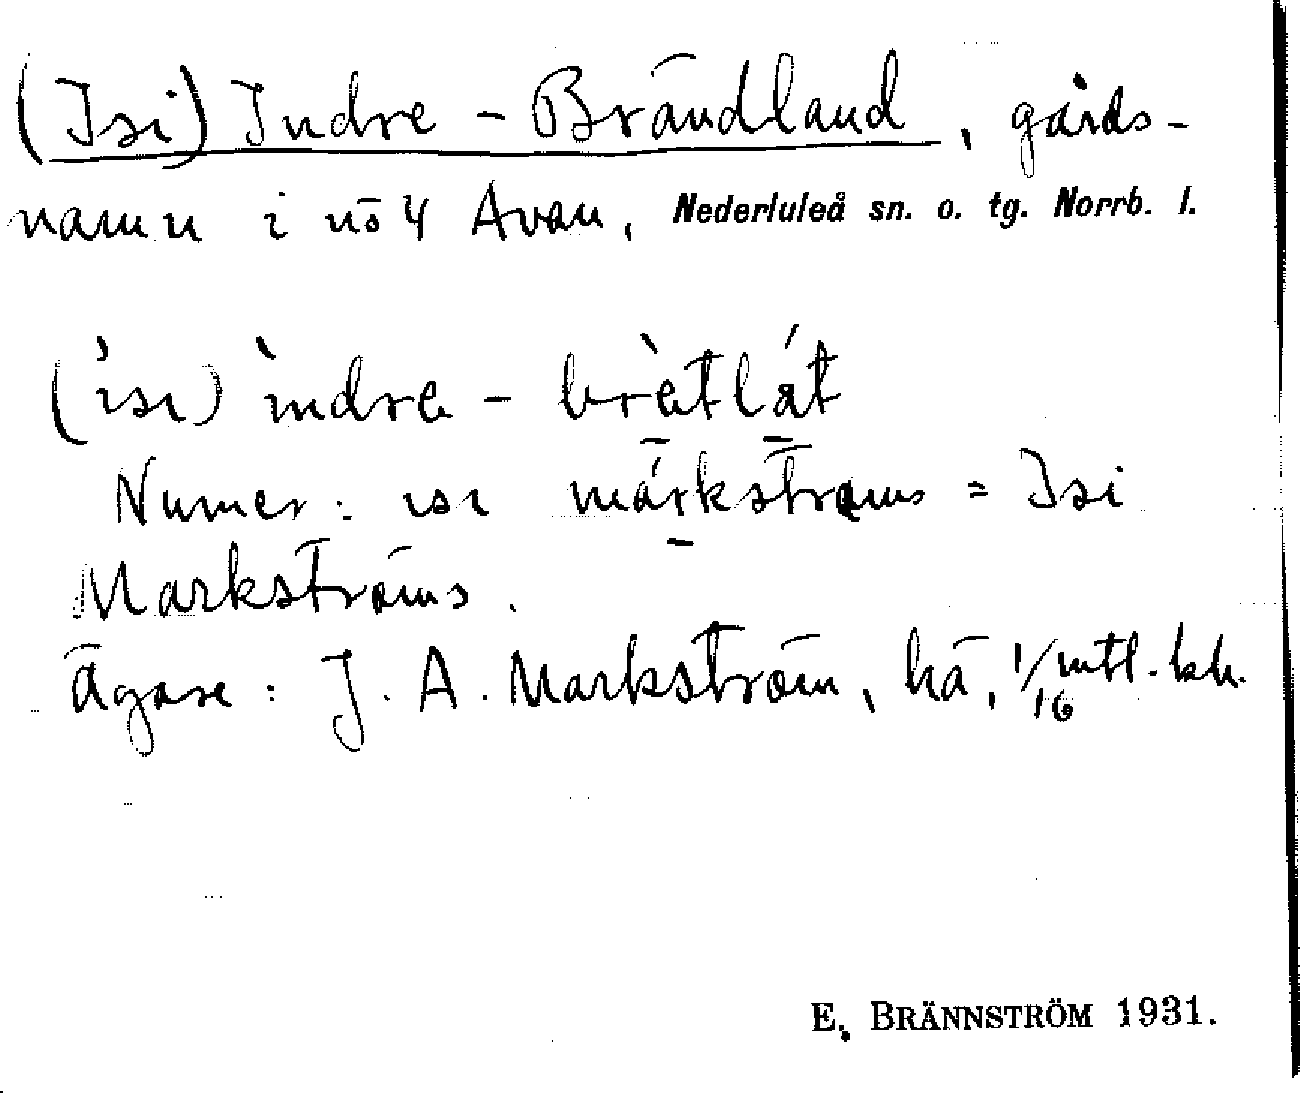 (Isi) Indre-Brändland, gårds-
namn i nö 4 Avan, Nederluleå sn. o. tg. Norrb. l.
(ìsı) ìndre - brètlát
Numer: ısı márkstrøms = Isi
Markströms.
Ägare: J. A. Markström, hä, 1/16 mtl. kh.
E. BRÄNNSTRÖM 1931.